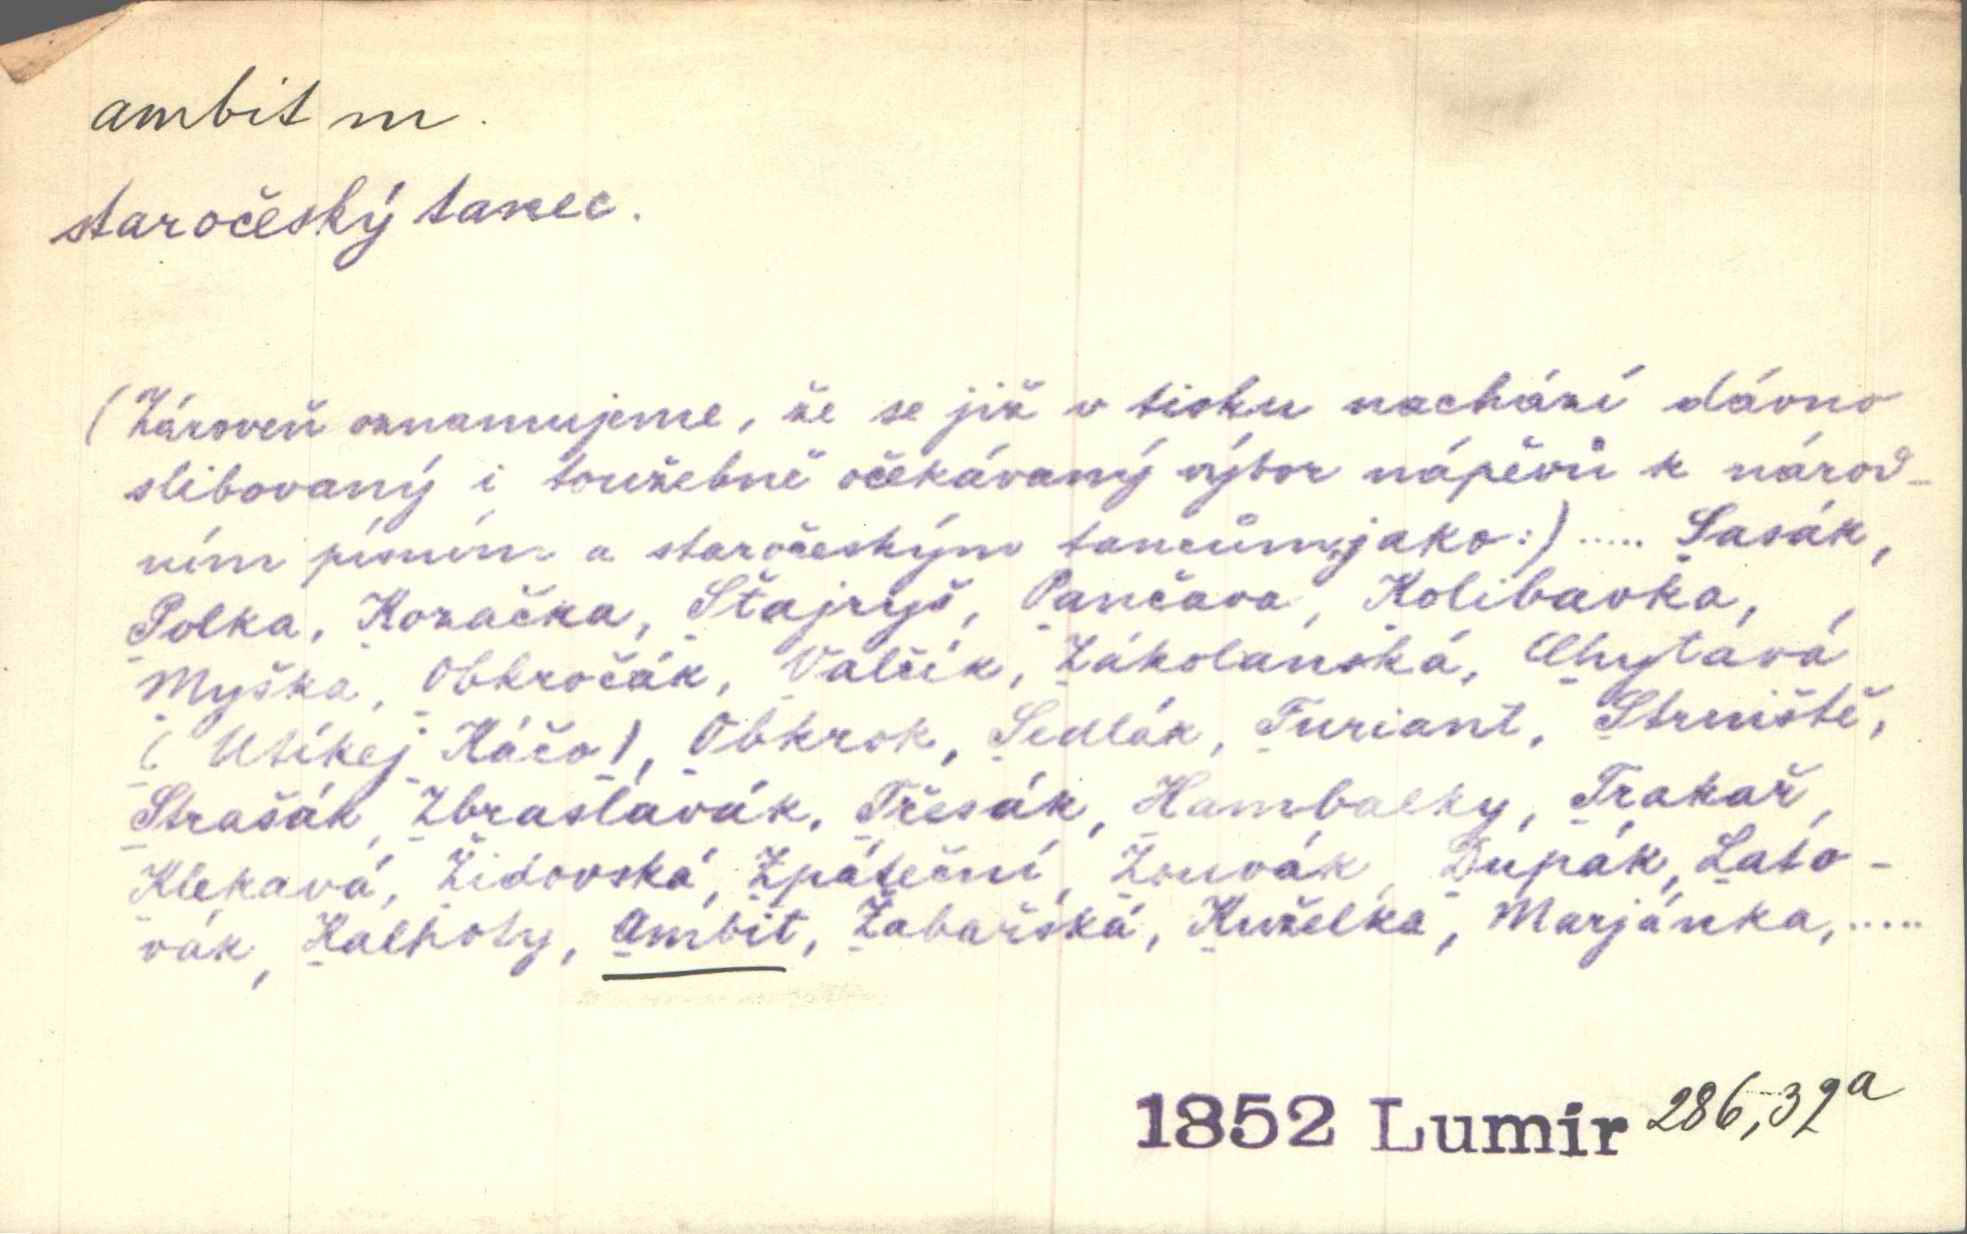 ambit m.
staročeský tanec.
(Zároveň oznamujeme, že se již v tisku nachází dávno
slibovaný i toužebně očekávaný výbor nápěvů k národ-
ním písním a staročeským tancům, jako:) ..... Sasák,
Polka, Kozačka, Štajryš, Pančava, Kolibavka,
Myška, Obkročák, Valčík, Zákolanská, Chytavá
(Utíkej Káčo), Obkrok, Sedlák, Furiant, Strniště,
Strašák, Zbraslavák, Třesák, Hambalky, Trakař,
Klekavá, Židovská, Zpáteční, Zouvák, Dupák, Lato-
vák, Kalhoty, Ambit, Žabařská, Kuželka, Marjánka, .....
1852 Lumír 286,32a